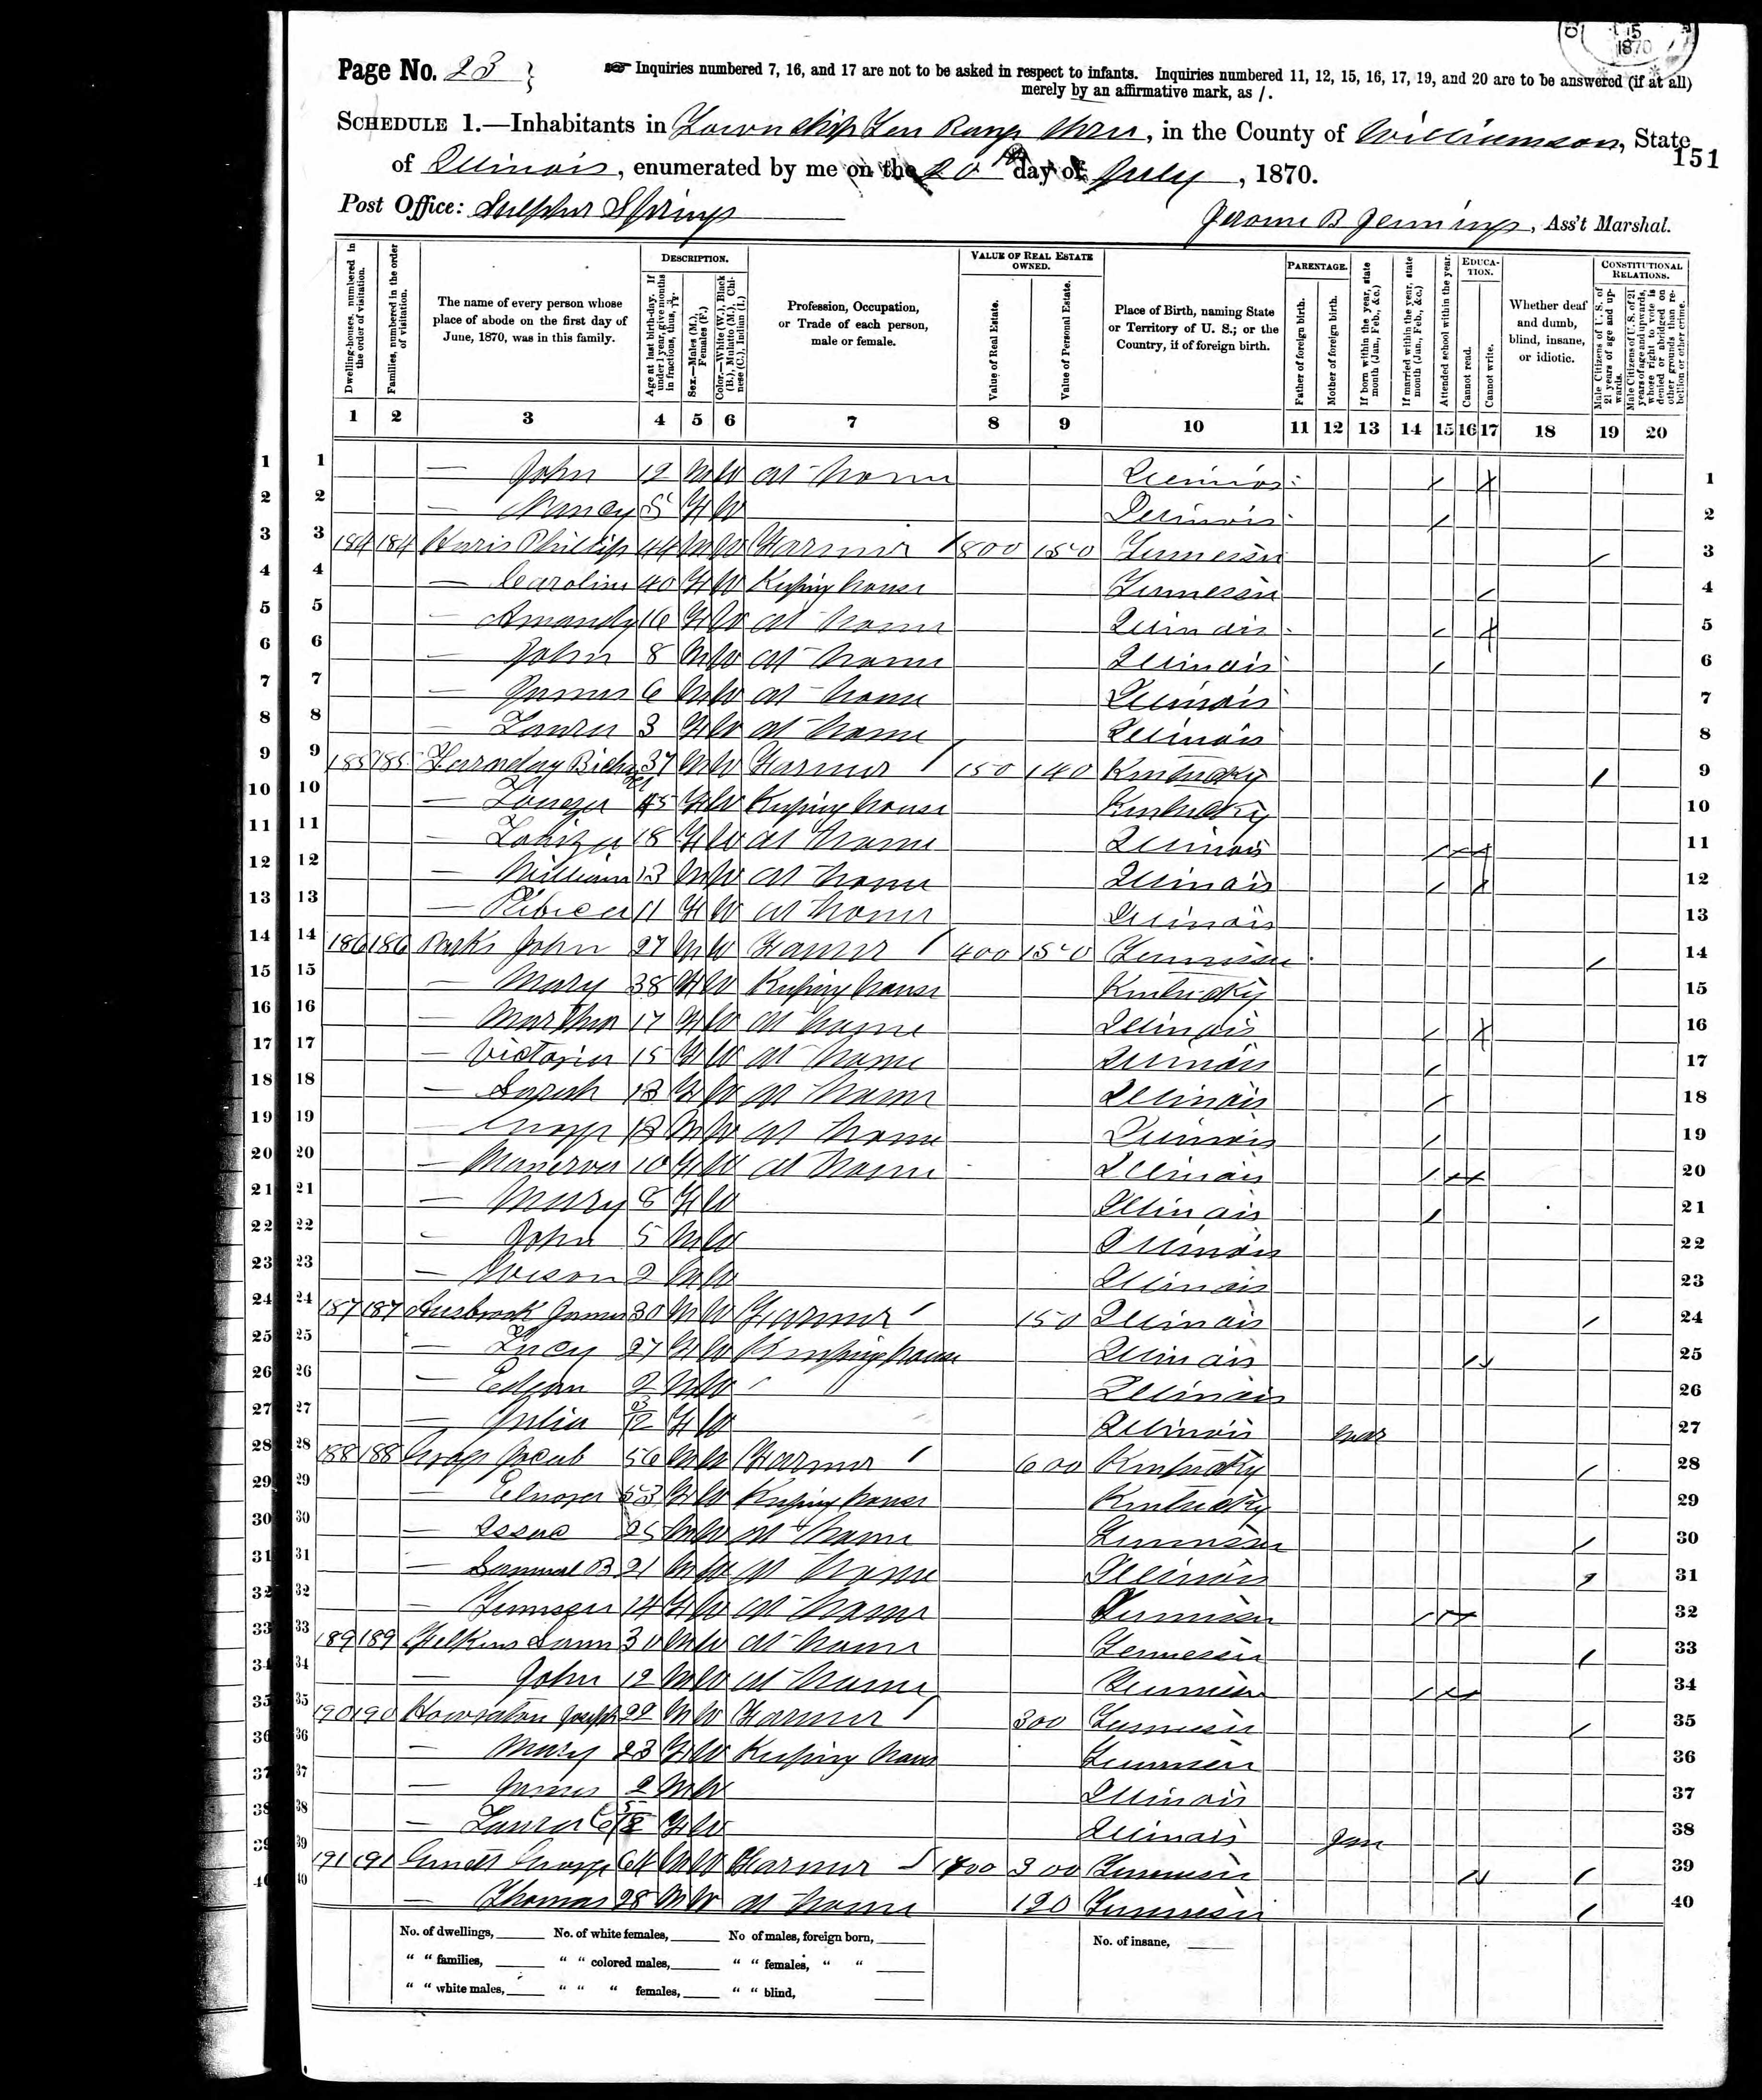 15
1870
Page No. 23
Inquiries numbered 7, 16, and 17 are not to be asked in respect to infants. Inquiries numbered 11, 12, 15, 16, 17, 19, and 20 are to be answered (if at all)
merely by an affirmative mark, as /.
SCHEDULE 1.—Inhabitants in Township Ten Range three, in the County of Williamson, State
151
of Illinois, enumerated by me on the 20th day of July, 1870.
Post Office: Sulphur Springs
Jerome B Jennings, Ass't Marshal.
Dwelling-houses, numbered in the order of visitation.
Families, numbered in the order of visitation.
The name of every person whose place of abode on the first day of June, 1870, was in this family.
DESCRIPTION.
Age at last birth-day. If under 1 year, give months in fractions, thus, 3/12.
Sex.—Males (M.), Females (F.)
Color.—White (W.), Black (B.), Mulatto (M.), Chinese (C.), Indian (I.)
Profession, Occupation, or Trade of each person, male or female.
VALUE OF REAL ESTATE OWNED.
Value of Real Estate.
Value of Personal Estate.
Place of Birth, naming State or Territory of U. S.; or the Country, if of foreign birth.
PARENTAGE.
Father of foreign birth.
Mother of foreign birth.
If born within the year, state month (Jan., Feb., &c.)
If married within the year, state month (Jan., Feb., &c.)
Attended school within the year.
EDUCATION.
Cannot read.
Cannot write.
Whether deaf and dumb, blind, insane, or idiotic.
CONSTITUTIONAL RELATIONS.
Male Citizens of U. S. of 21 years of age and upwards.
Male Citizens of U. S. of 21 years of age and upwards, whose right to vote is denied or abridged on other grounds than rebellion or other crime.
1 2 3 4 5 6 7 8 9 10 11 12 13 14 15 16 17 18 19 20
1 1 — John 12 M W at home Illinois / / 1
2 2 — Nancy 5 F W Illinois / 2
3 3 184 184 Haris Phillip 44 M W Farmer / 800 150 Tennessee / 3
4 4 — Caroline 40 F W Keeping house Tennessee / 4
5 5 — Amandy 16 F W at home Illinois / / 5
6 6 — John 8 M W at home Illinois / 6
7 7 — James 6 M W at home Illinois 7
8 8 — Laura 3 F W at home Illinois 8
9 9 185 185 37 M W Farmer / 150 140 Kentucky / 9
10 10 — 45 F W Keeping house Kentucky 10
11 11 — 18 F W at home Illinois / / / 11
12 12 — William 13 M W at home Illinois / / 12
13 13 — Rebecca 11 F W at home Illinois 13
14 14 186 186 Parks John 27 M W Farmer / 400 150 Tennessee / 14
15 15 — Mary 38 F W Keeping house Kentucky 15
16 16 — Martha 17 F W at home Illinois / / 16
17 17 — Victoria 15 F W at home Illinois / 17
18 18 — Sarah 13 F W at home Illinois / 18
19 19 — 13 M W at home Illinois / 19
20 20 — Manerva 10 F W at home Illinois / / / 20
21 21 — Mary 8 F W Illinois / 21
22 22 — John 5 M W Illinois 22
23 23 — 2 M W Illinois 23
24 24 187 187 James 30 M W Farmer / 150 Illinois / 24
25 25 — Lucy 27 F W Keeping house Illinois / / 25
26 26 — 2 M W Illinois 26
27 27 — Julia 3/12 F W Illinois Mar 27
28 28 188 188 Jacob 56 M W Farmer / 600 Kentucky / 28
29 29 — Elnora 53 F W Keeping house Kentucky 29
30 30 — Issac 25 M W at home Tennessee / 30
31 31 — Samuel B 21 M W at home Illinois / 31
32 32 — 14 F W at home Tennessee / / / 32
33 33 189 189 30 M W at home Tennessee / 33
34 34 — John 12 M W at home Tennessee / / / 34
35 35 190 190 Joseph 22 M W Farmer / 300 Tennessee / 35
36 36 — Mary 23 F W Keeping house Tennessee 36
37 37 — James 2 M W Illinois 37
38 38 — Laura F W Illinois Jan 38
39 39 191 191 George 64 M W Farmer / 300 Tennessee / / 39
40 40 — Thomas 28 M W at home 120 Tennessee / 40
No. of dwellings, No. of white females, No of males, foreign born, No. of insane,
" " families, " " colored males, " " females, " "
" " white males, " " " females, " " blind,